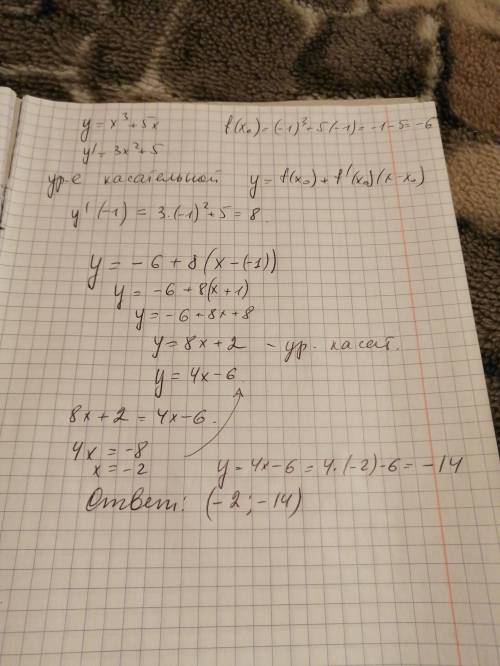 y = x³ + 5x
f(x₀) = (-1)³ - 5(-1) = -1 - 5 = -6
y' = 3x² + 5
ур-е касательной y = f(x₀) + f'(x₀)(x - x₀)
y'(-1) = 3·(-1)² + 5 = 8.
y = -6 + 8(x - (-1))
y = -6 + 8(x + 1)
y = -6 + 8x + 8
y = 8x + 2 - ур. касат.
y = 4x - 6
8x + 2 = 4x - 6.
4x = -8
x = -2
y = 4x - 6 = 4·(-2) - 6 = -14
Ответ: (-2; -14)